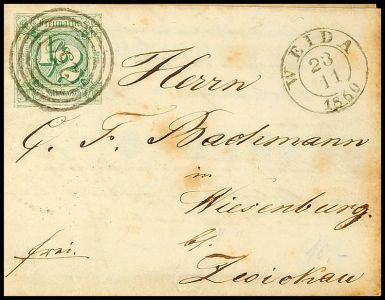 WEIDA
23
11
1860
Herrn
C. F. Bachmann
in
Wiesenburg
bei
Zwickau
frei.